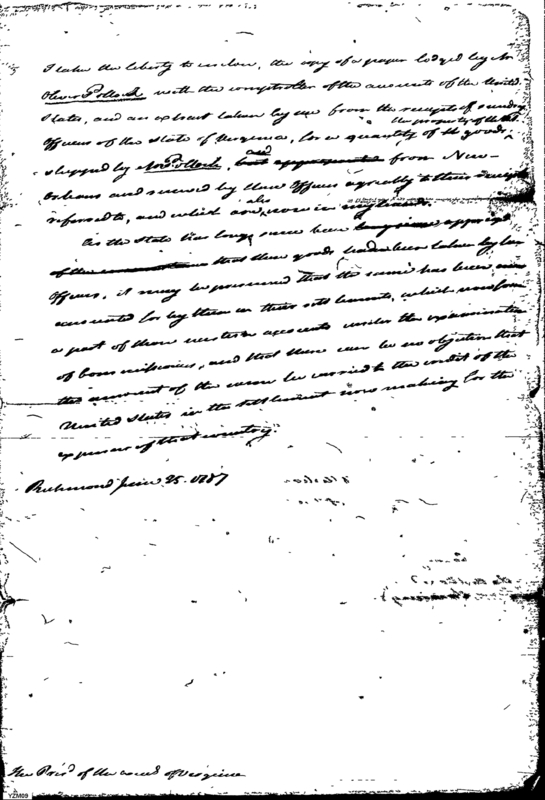 I take the liberty to inclose, the copy of a paper lodged by Mr
Oliver Pollock with the comptroller of the accounts of the United
States, and an extract taken by me from the receipts of sundry
the property of the U.S.
Officers of the State of Virginia, for a quantity of the goods,
and
shipped by Mr Pollock, but from New-
orleans and received by these Officers agreeably to their receipts
also
referred to, and which are now in my hands.
As the State has long since been apprized
of the that these goods had been taken by her
Officers, it may be presumed that the same has been
accounted for by them in their settlements, which now form
a part of those western accounts under the examination
of Commissioners, and that there can be no objection that
the amount of the same be carried to the credit of the
United States in the settlement now making for the
expences of that country.
Richmond June 25. 1787
The Presd of the council of Virginia
YZM09